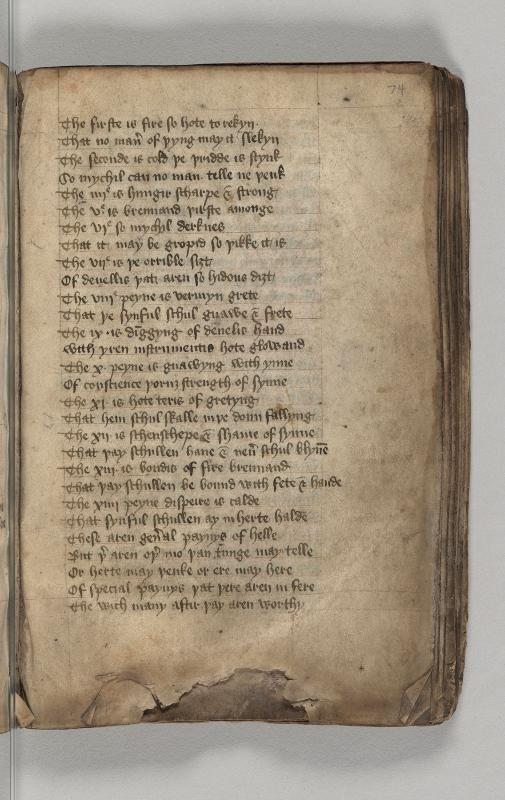 74
The firste is fire so hote to rekyn
That no man̄ of þyng may it slekyn
The seconde is cold þe þridde is stynk
So mychil can no man telle ne þenk
The iiijᵉ is hungir scharpe & strong
The vᵉ is brennand þirste amonge
The viᵉ so mychil derknes
That it may be gropid so þikke it is
The viiᵉ is þe orrible siȝt
Of deuellis þatt aren so hidous diȝt
The viiiᵉ peyne is vermyn grete
That þe synful schul gnawe & frete
The ix is dīggyng of deuelis hand
With yren instrumentis hote glowand
The x peyne is gnawyng with ynne
Of conscience þorw strength of synne
The xi is hote teris of gretyng
That hem schul skalle in þe doun fallyng
The xii is schenschepe & shame of synne
That þay schullen haue & neū schul blyn̄e
The xiii is bondis of fire brennand
That þay schullen be bound with fete & hande
The xiiii peyne dispeire is calde
That synful schullen ay in herte halde
These aren gen̄al paynys of helle
But þ̄ aren oþ̄ mo þan tunge may telle
Or herte may þenke or ere may here
Of special paynys þat þere aren in fere
The wich many aftir þay aren worthi